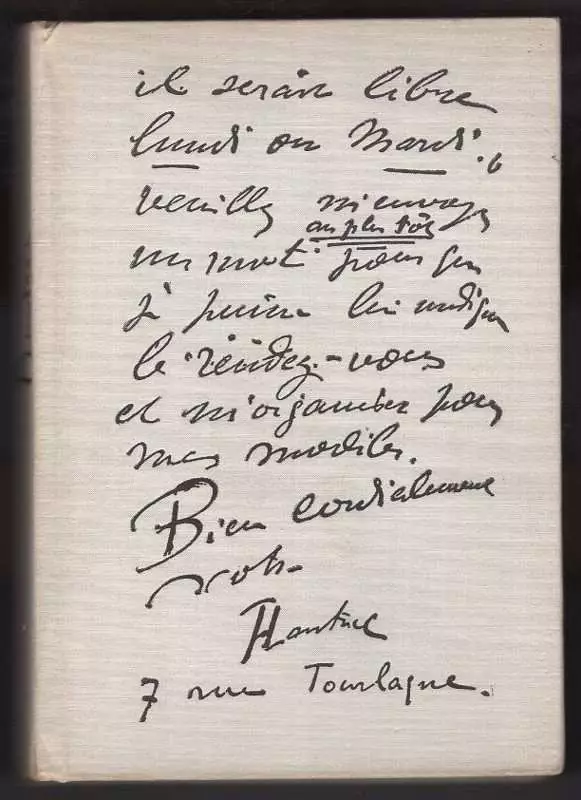 il serait libre
lundi ou Mardi.
veuillez m'envoyer
au plus tôt
un mot pour que
je puisse lui indiquer
le rendez-vous
et m'organiser pour
mes modèles.
Bien cordialement
votre
HLautrec
7 rue Tourlaque.